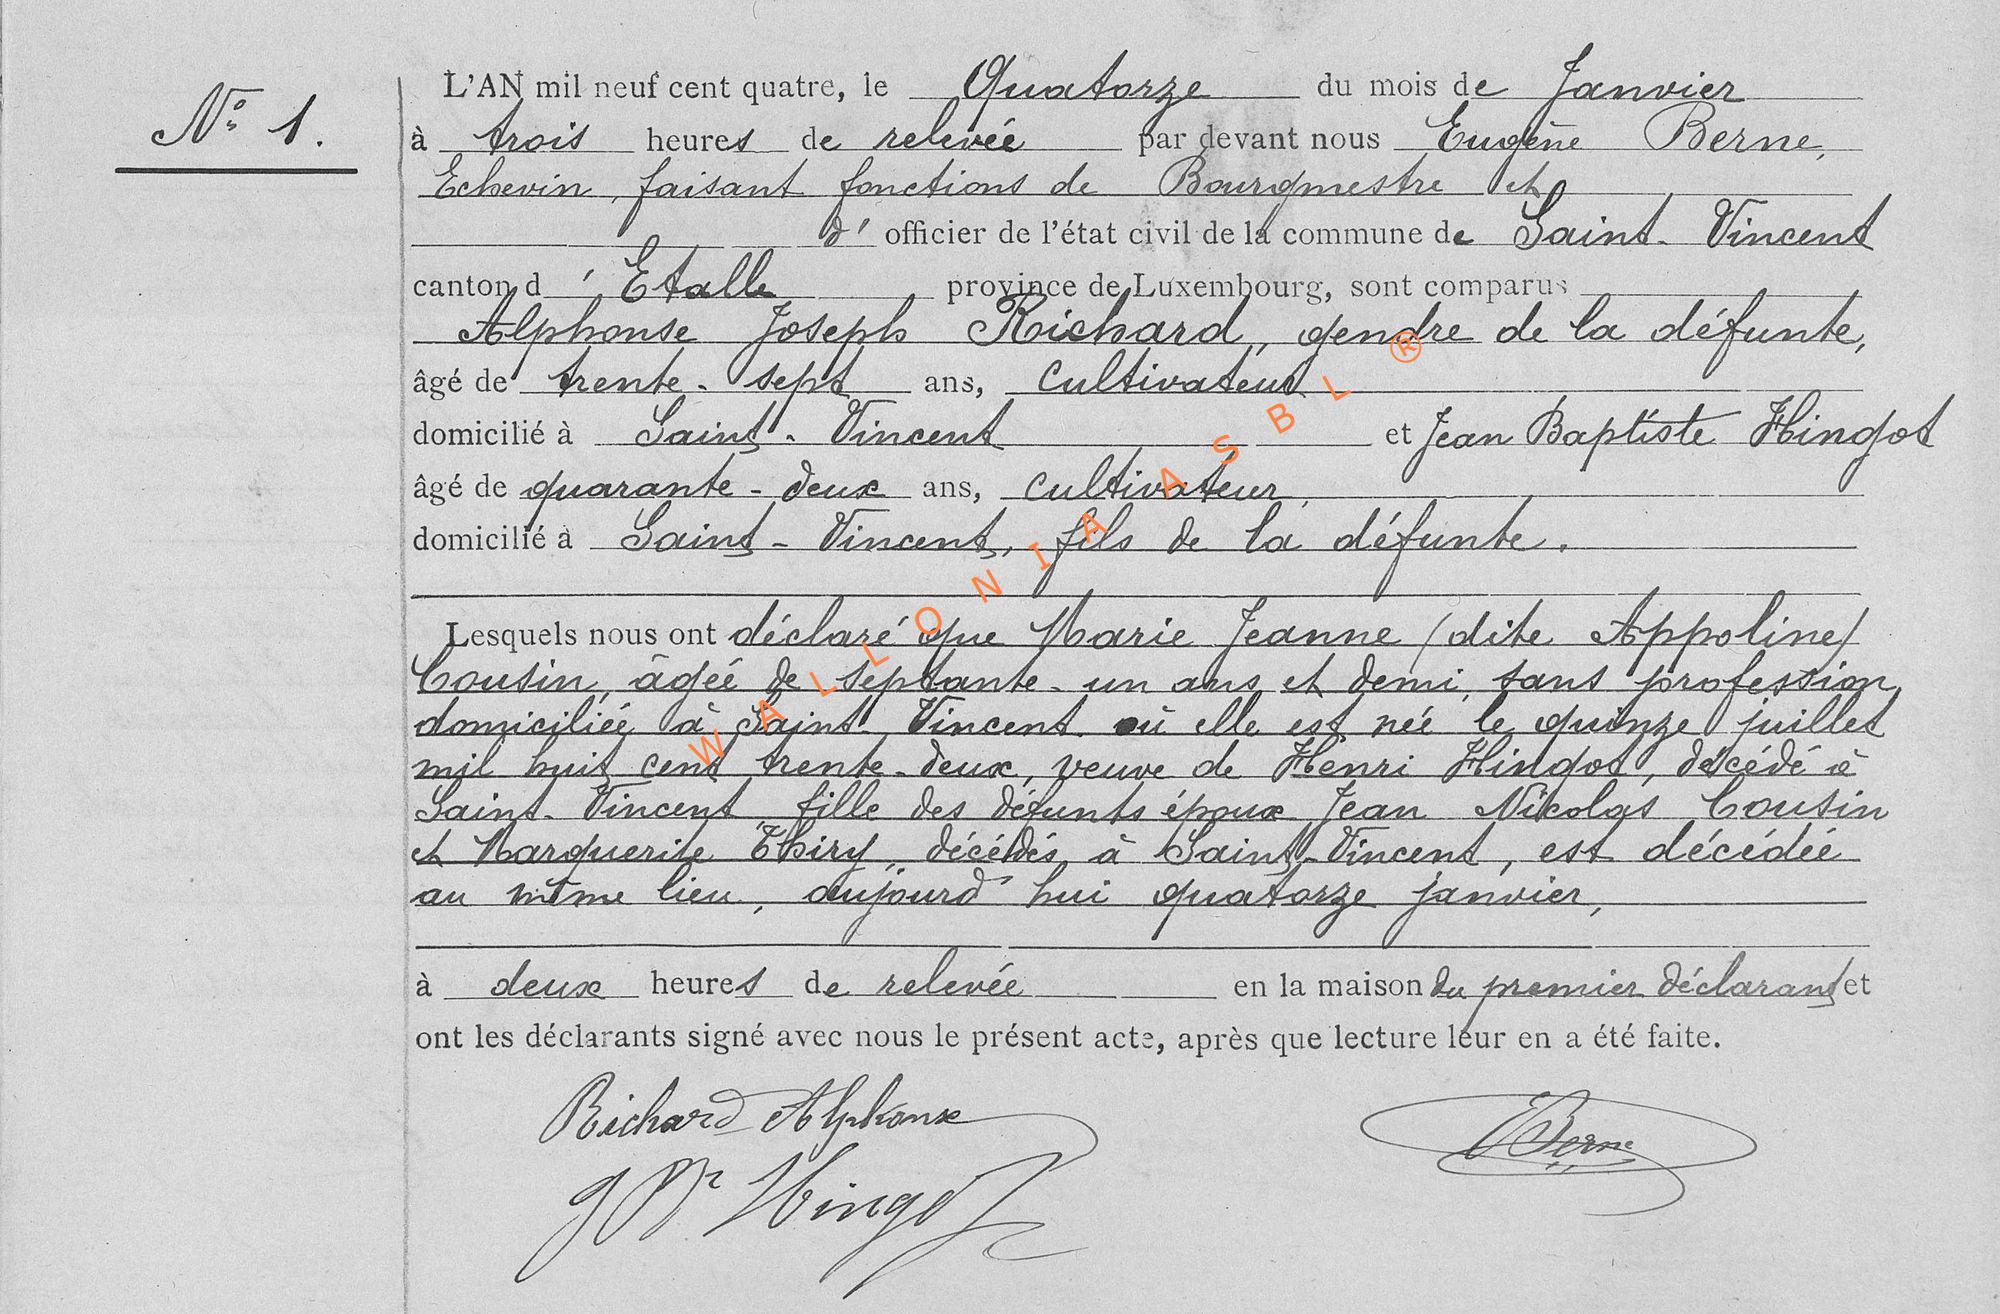 N° 1.
L'AN mil neuf cent quatre, le Quatorze du mois de Janvier
à trois heures de relevée par devant nous Eugène Berne,
Echevin, faisant fonctions de Bourgmestre et
d' officier de l'état civil de la commune de Saint-Vincent
canton d'Etalle province de Luxembourg, sont comparus
Alphonse Joseph Richard, gendre de la défunte,
âgé de trente-sept ans, cultivateur
domicilié à Saint-Vincent et Jean Baptiste Hingot
âgé de quarante-deux ans, cultivateur,
domicilié à Saint-Vincent, fils de la défunte.
Lesquels nous ont déclaré que Marie Jeanne (dite Appoline)
Cousin, âgée de septante-un ans et demi, sans profession,
domiciliée à Saint-Vincent où elle est née le quinze juillet
mil huit cent trente-deux, veuve de Henri Hingot, décédé à
Saint-Vincent, fille des défunts époux Jean Nicolas Cousin
et Marguerite Thiry, décédés à Saint-Vincent, est décédée
au même lieu, aujourd'hui quatorze janvier,
à deux heures de relevée en la maison du premier déclarant et
ont les déclarants signé avec nous le présent acte, après que lecture leur en a été faite.
Richard Alphonse
EBerne
J Bte Hingot
WALLONIA ASBL ®